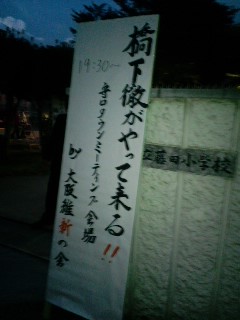 橋下徹がやって来る!!
19:30～
守口タウンミーティング会場
大阪維新の会
立藤田小学校